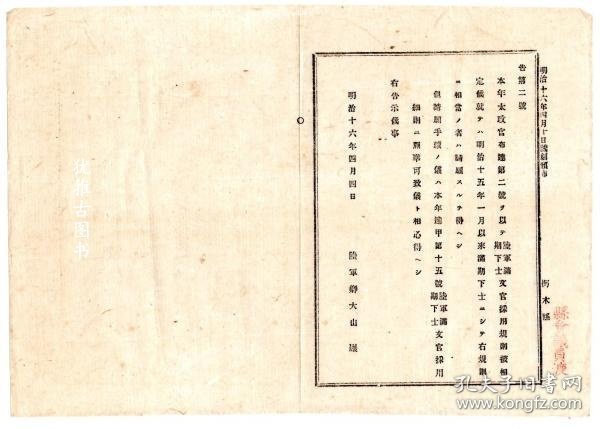 明治十六年四月十日
栃木縣
告第二號
本年太政官布達第二號ヲ以テ陸軍滿期下士文官採用規則被相
定候就テハ明治十五年一月以來滿期下士ニシテ右規則
ニ相當ノ者ハ請願スルヲ得ヘシ
但請願手續ノ儀ハ本年達甲第十五號陸軍滿期下士文官採用
細則ニ照準可致儀ト相心得ヘシ
右告示候事
明治十六年四月四日
陸軍卿大山巖
优雅古图书
孔夫子旧书网
www.kongfz.com